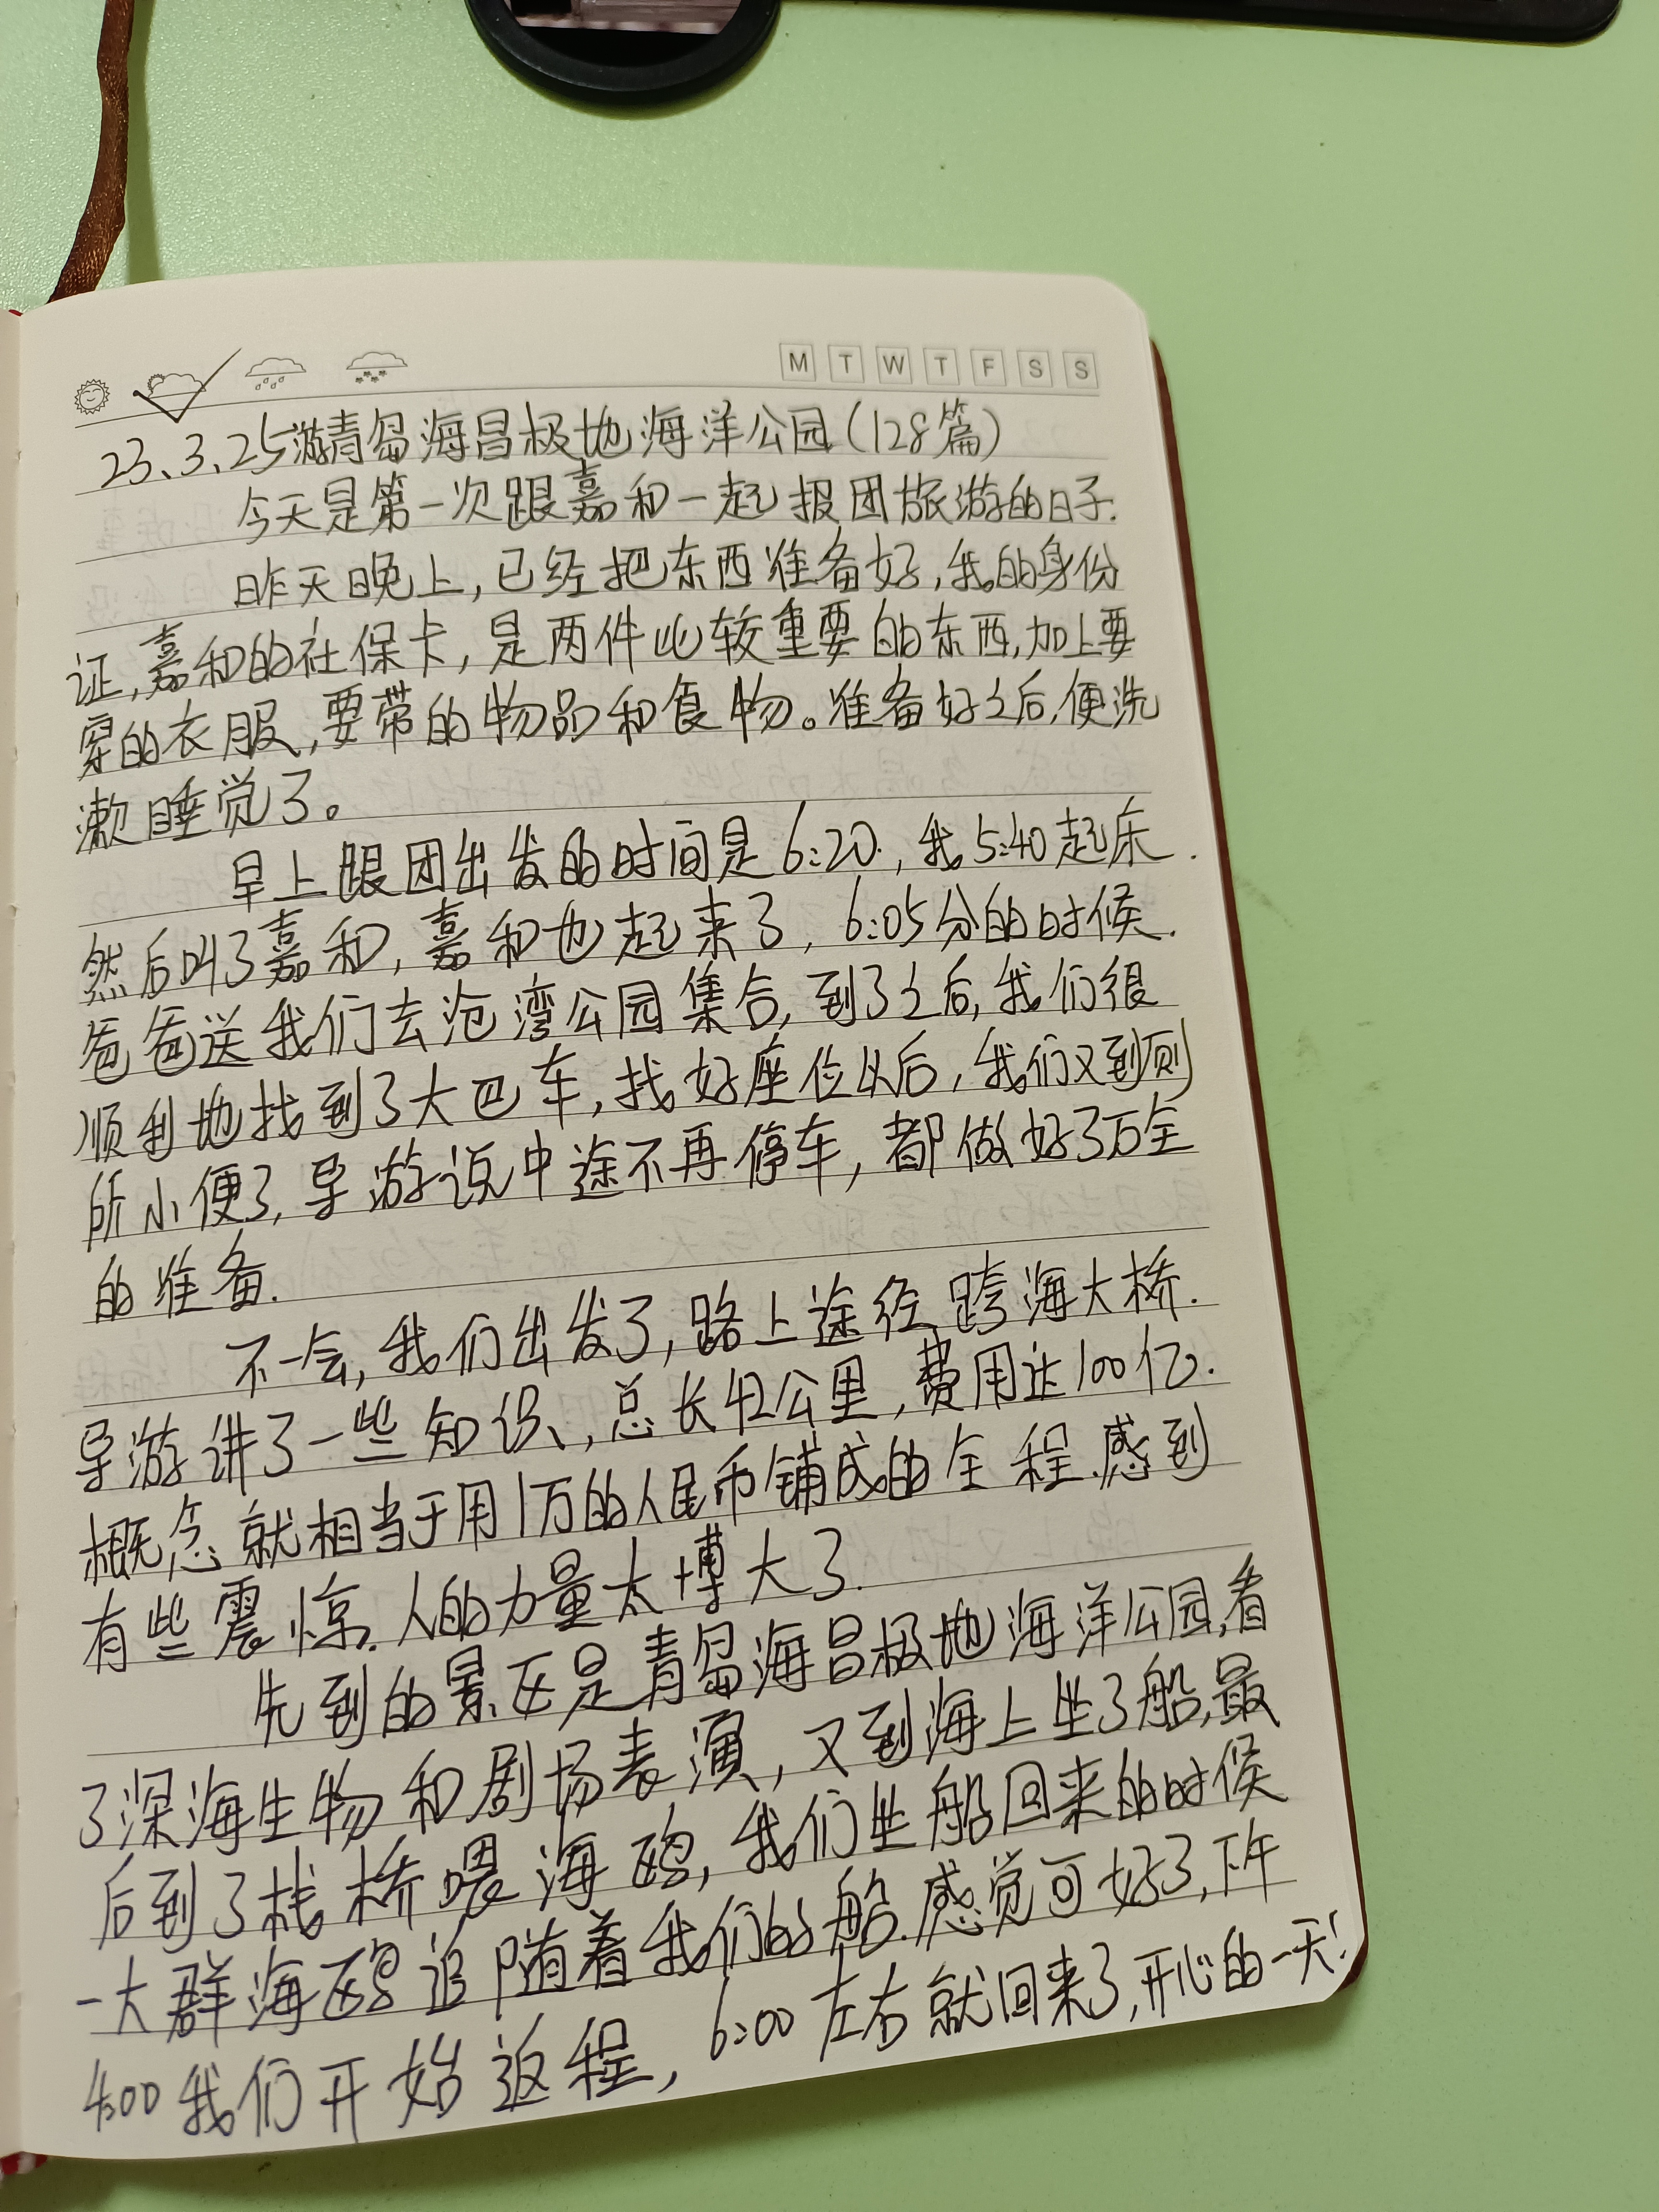 M T W T F S S
23.3.25游青岛海昌极地海洋公园(128篇)
今天是第一次跟嘉和一起报团旅游的日子.
昨天晚上,已经把东西准备好,我的身份
证,嘉和的社保卡,是两件比较重要的东西,加上要
穿的衣服,要带的物品和食物。准备好之后,便洗
漱睡觉了。
早上跟团出发的时间是6:20,我5:40起床.
然后叫了嘉和,嘉和也起来了,6:05分的时候.
爸爸送我们去沧湾公园集合,到了之后,我们很
顺利地找到了大巴车,找好座位以后,我们又到厕
所小便了,导游说中途不再停车,都做好了万全
的准备.
不一会,我们出发了,路上途经跨海大桥.
导游讲了一些知识,总长42公里,费用达100亿.
概念就相当于用1万的人民币铺成的全程.感到
有些震惊.人的力量太博大了.
先到的景区是青岛海昌极地海洋公园,看
了深海生物和剧场表演,又到海上坐了船,最
后到了栈桥喂海鸥,我们坐船回来的时候
一大群海鸥追随着我们的船.感觉可好了,下午
4:00我们开始返程,6:00左右就回来了,开心的一天!